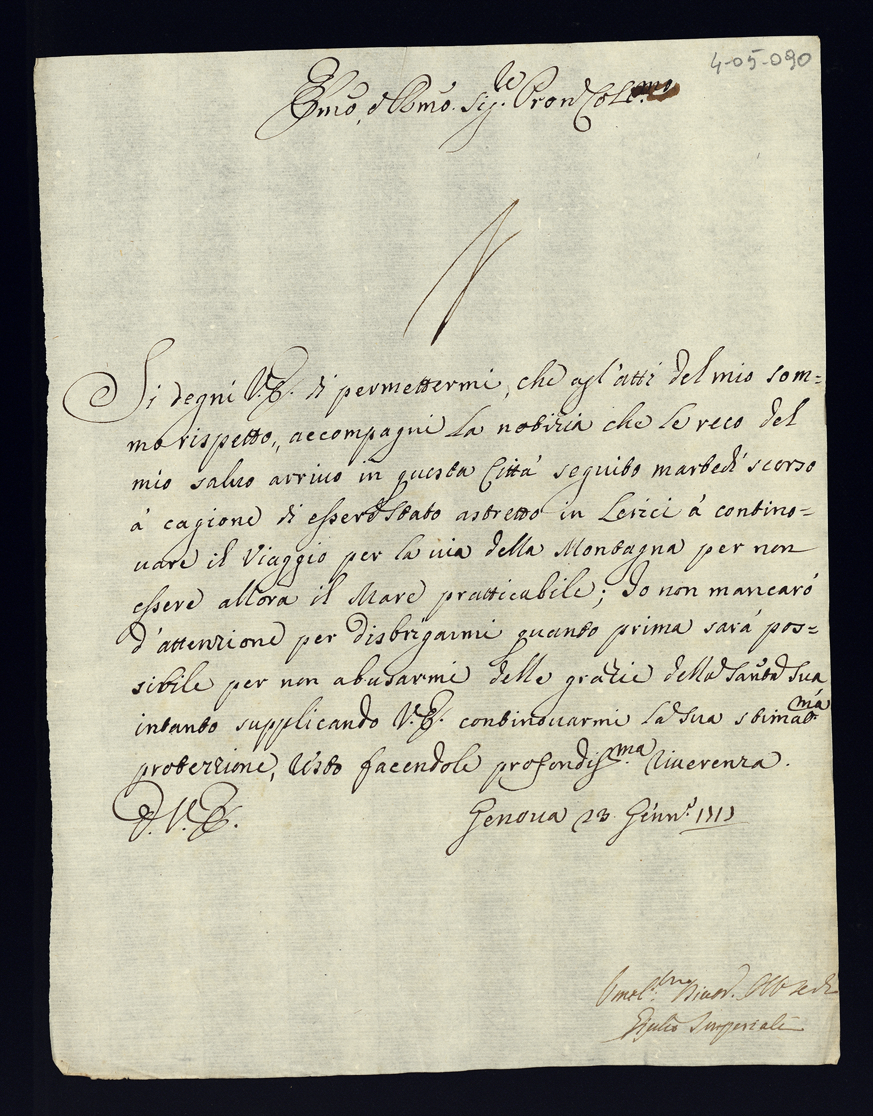 4-05-090
Emo, e Rmo. Sig.re Pron Col.mo
Si degni V.E. di permettermi, che agl'atti del mio som=
mo rispetto, accompagni la notizia che le reco del
mio salvo arrivo in questa Città seguito martedì scorso
à cagione di essere stato astretto in Lerici à contino=
vare il Viaggio per la via della Montagna per non
essere allora il Mare pratticabile; Io non mancarò
d'attenzione per disbrigarmi quanto prima sarà pos=
sibile per non abusarmi delle grazie della Santà Sua
intanto supplicando V.E. continovarmi la sua stimat.ma
protezzione, resto facendole profondiss.ma riverenza.
D.V.E. Genova 23 Genn.o
Giulio Imperiali